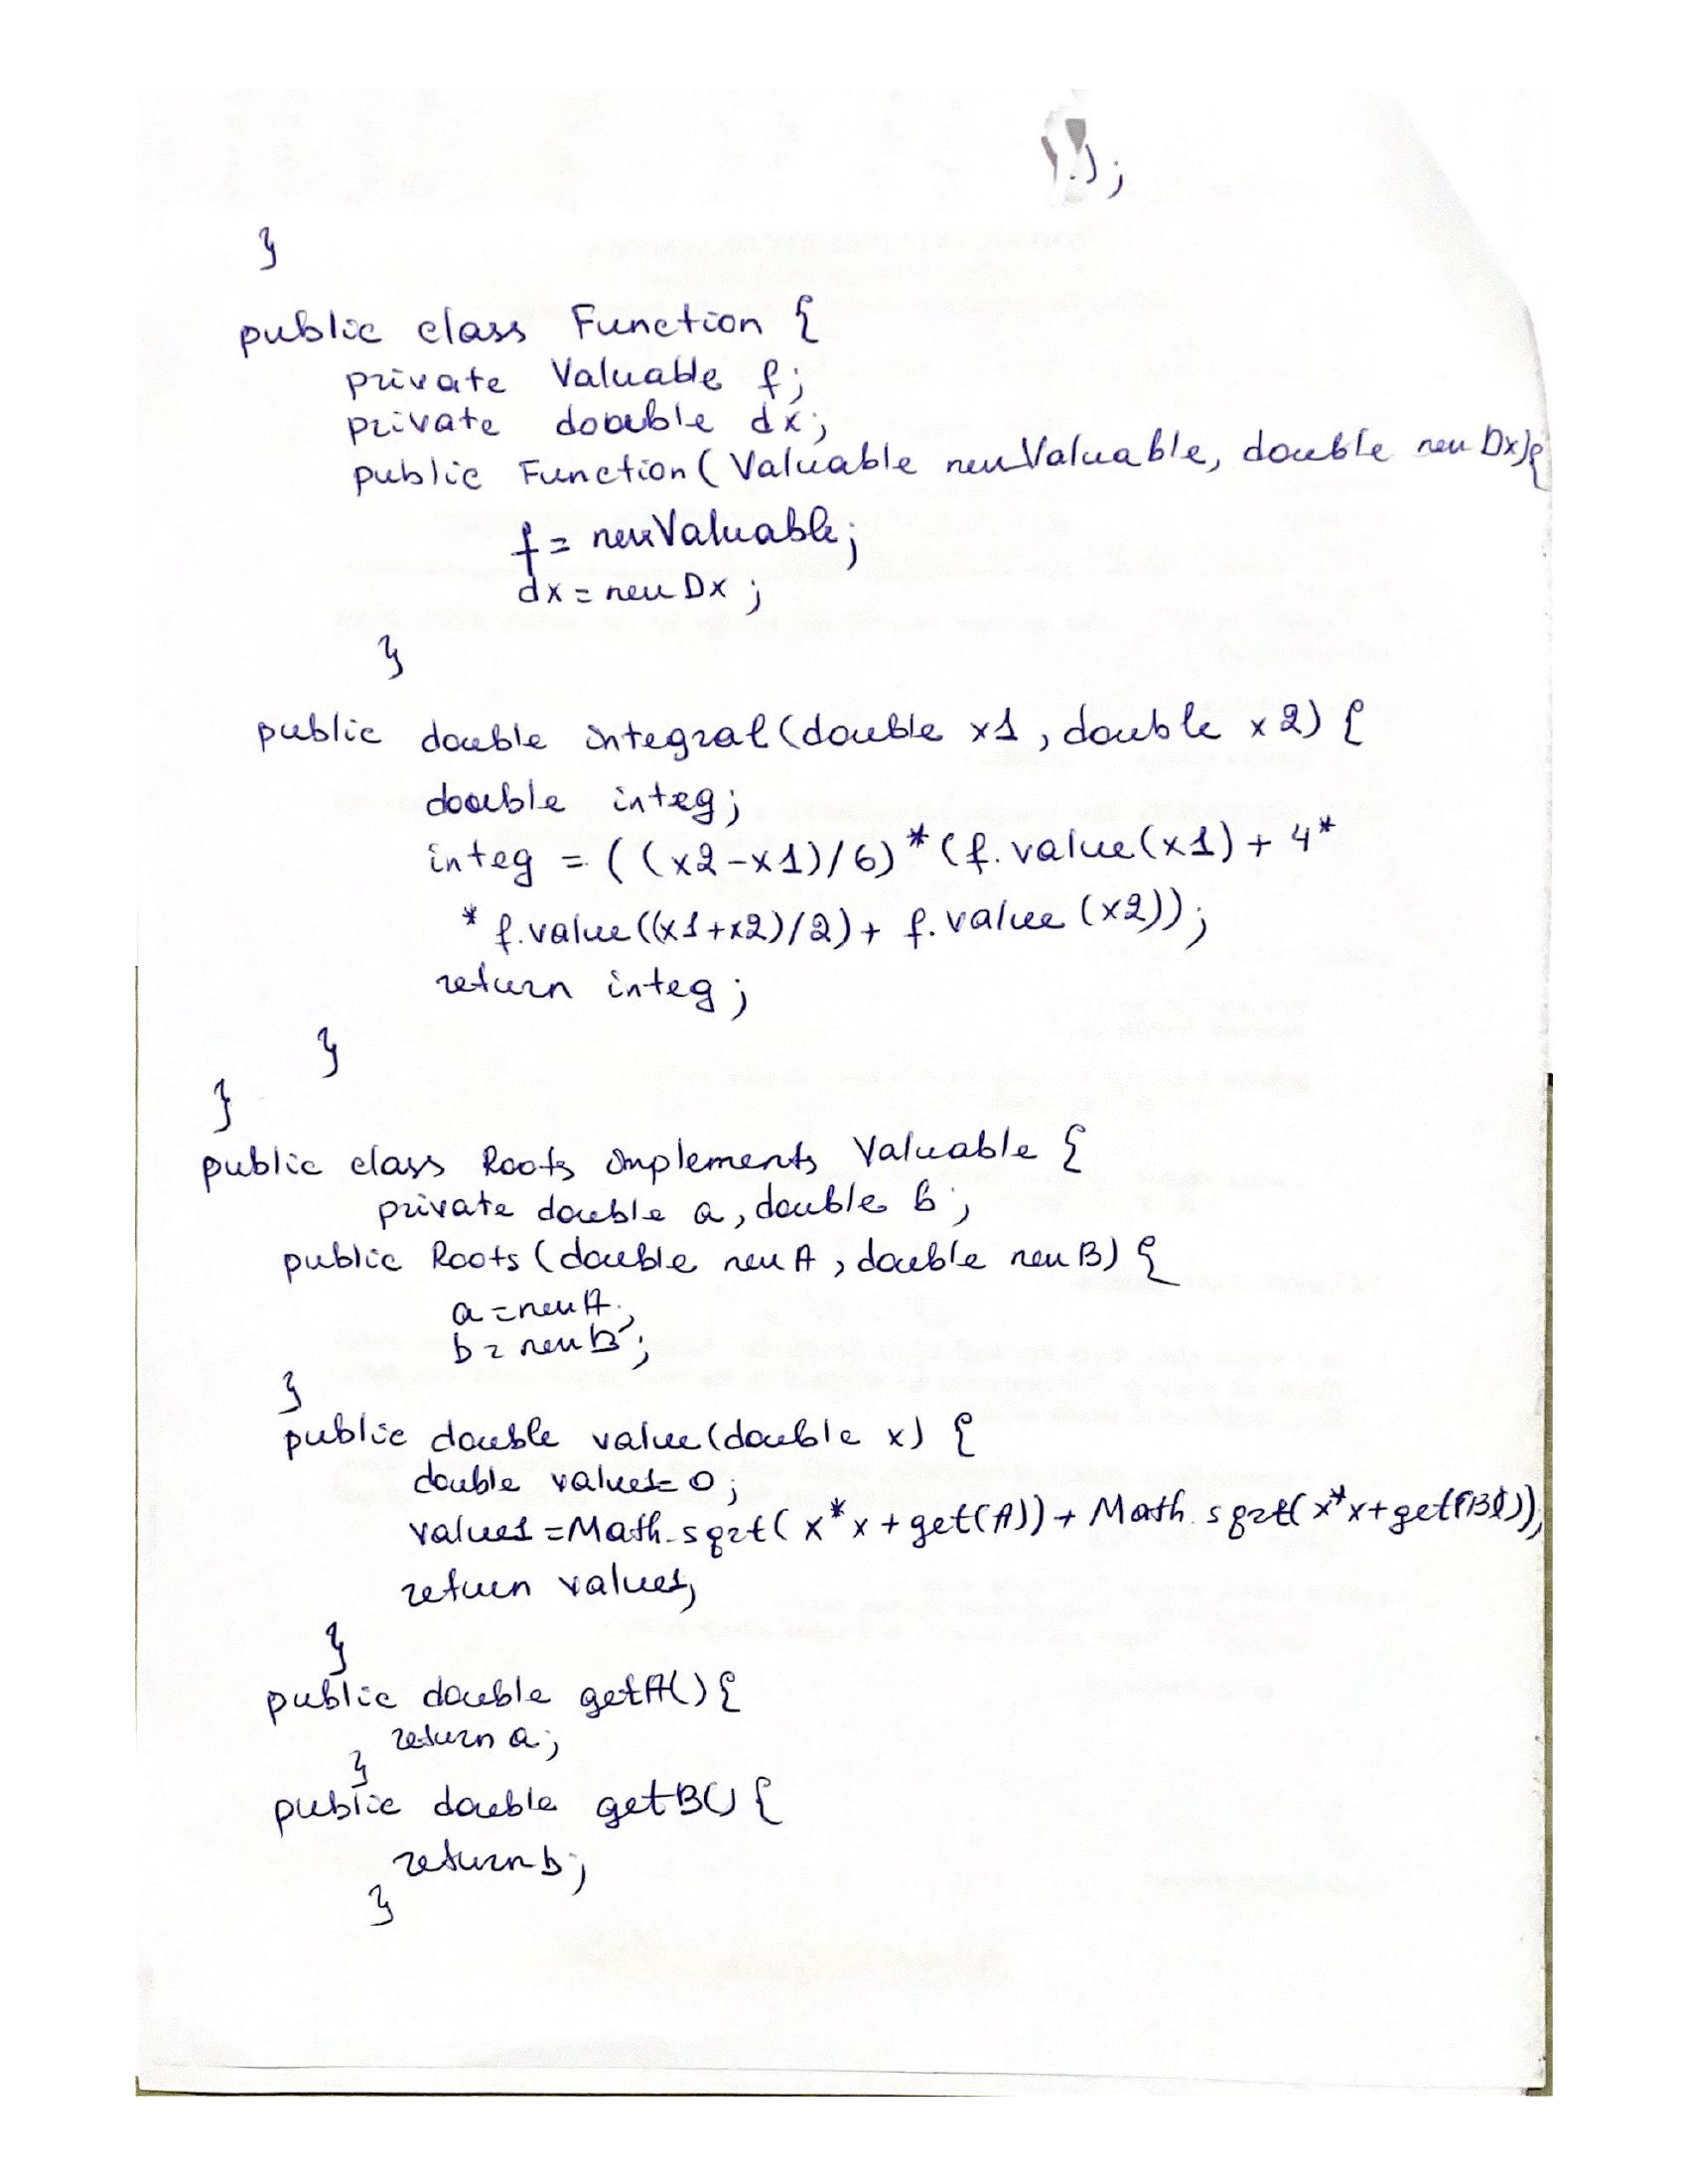 );
}
public class Function {
private Valuable f;
private double dx;
public Function (Valuable newValuable, double newDx){
f = newValuable;
dx = newDx ;
}
public double integral (double x1, double x2) {
double integ;
integ = ((x2-x1)/6)*(f.value(x1)+ 4*
* f.value((x1+x2)/2)+ f.value (x2));
return integ;
}
}
public class Roots implements Valuable {
private double a, double b;
public Roots (double newA, double newB) {
a = newA;
b = newB;
}
public double value (double x) {
double value1= 0;
value1 = Math.sqrt( x*x + get(A)) + Math.sqrt( x*x+get(B));
return value1;
}
public double getA() {
return a;
}
public double getB() {
return b;
}